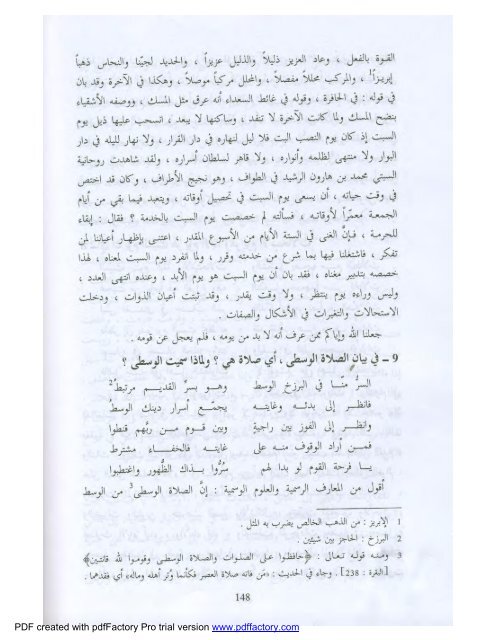 القـوة بالفعل ، وعاد العزيز ذليلاً والذليل عزيزاً ، والحديد لجيّنا والنحاس ذهباً
إبريـزاً1 ، والمركب محللاً مفصلاً ، والمحلل مركباً موصلاً ، وهكذا في الآخرة وقد بان
في قوله : في الحافرة ، وقوله في غائط السعداء أنه عرق مثل المسك ، ووصفه الأشقياء
بنضح المسك ولما كانت الآخرة لا تنفد ، وساكنها لا يبعد ، انسحب عليها ذيل يوم
السبت إذ كان يوم النصب البت فلا ليل لنهاره في دار القرار ، ولا نهار لليله في دار
البوار ولا منتهى لظلمه وأنواره ، ولا قاهر لسلطان أسراره ، ولقد شاهدت روحانية
السبتي محمد بن هارون الرشيد في الطواف ، وهو نجيح الأطراف ، وكان قد اختص
في وقت حياته ، أن يسعى يوم السبت في تحصيل أوقاته ، ويتعبد فيما بقي من أيام
الجمعـة معمّراً لأوقاتـه ، فسألته لم خصصت يوم السبت بالخدمة ؟ فقال : إبقاء
للحرمـة ، فـإنَّ الغنى في الستة الأيام من الأسبوع المقدر ، اعتنـى بإظهـار أعياننا لمن
تفكر ، فاشتغلنا فيها بما شرع من خدمته وقرر ، ولما انفرد يوم السبت لمعناه ، لهذا
خصصه بتدبير مغناه ، فقد بان أن يوم السبت هو يوم الأبد ، وعنده انتهى العدد ،
وليس وراءه يوم ينتظر ، ولا وقت يقدر ، وقد ثبتت أعيان الذوات ، ودخلت
الاستحالات والتغيرات في الأشكال والصفات .
جعلنا الله وإياكم ممن عرف أنه لا بد من يومه ، فلم يعجل عن قومه .
9 ــ في بيان الصلاة الوسطى ، أي صلاة هي ؟ ولماذا سميت الوسطى ؟
السرُّ منّـا في البرزخ الوسط وهـو بسرّ القديـم مرتبط2
فانظـر إلى بدئـه وغايتـه يجمّـع أسرار دينك الوسطُ
وانظـر إلى الفوز بين راجيهِ وبين قـوم مـن ربّهم قنطوا
فمـن أراد الوقوف منـه على غايتـه فالخفـاء مشترط
يـا فرحة القوم لو بدا لهم سُرُّوا بـذاك الظُّهور واغتبطوا
أقول من المعارف الرسمية والعلوم الوسمية : إنَّ الصلاة الوسطى3 من الوسط
1 الإبريز : من الذهب الخالص يضرب به المثل .
2 البرزخ : الحاجز بين شيئين .
3 ومنـه قولـه تـعـالى : ﴿حافظوا على الصلـوات والصلاة الوسطـى وقومـوا لله قانتين﴾
[البقرة : 238] . وجاء في الحديث : «من فاته صلاة العصر فكأنما وُتِر أهله وماله» أي فقدهما .
148
PDF created with pdfFactory Pro trial version www.pdffactory.com